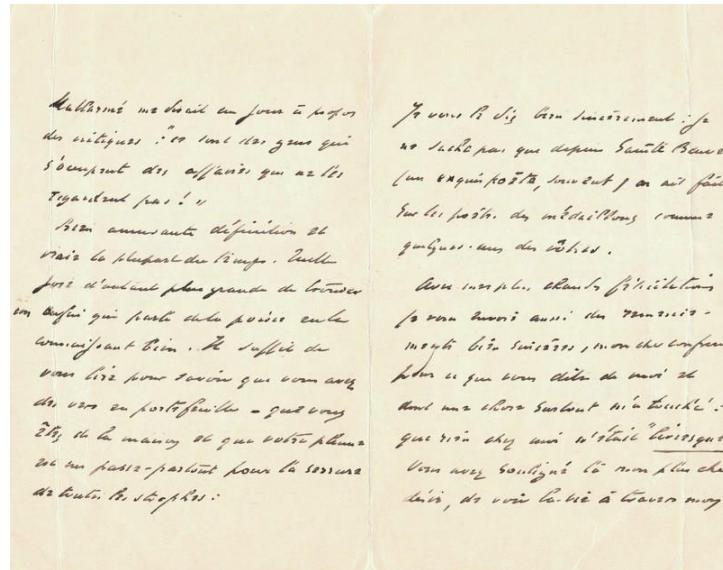 Mallarmé me disait un jour à propos
des critiques : "ce sont des gens qui
s'occupent des affaires qui ne les
regardent pas ! "
Bien amusante définition et
vraie la plupart du temps. Quelle
joie d'autant plus grande de trouver
enfin qui parle de la poésie en la
connaissant bien. Il suffit de
vous lire pour savoir que vous avez
des vers en portefeuille – que vous
êtes de la maison et que votre plume
est un passe-partout pour la serrure
de toutes les strophes.
Je vous le dis bien sincèrement : je
ne sache pas que depuis Sainte Beuve
(un exquis poète, souvent) on ait fait
sur les poètes des médaillons comme
quelques-uns des vôtres.
Avec mes plus chaudes félicitations
je vous envoie aussi des remercie-
ments bien sincères, mon cher confrère
pour ce que vous dites de moi et
dont une chose surtout m'a touché :
que rien chez moi n'était "livresque
Vous avez souligné là mon plus cher
désir, de voir la vie à travers mon